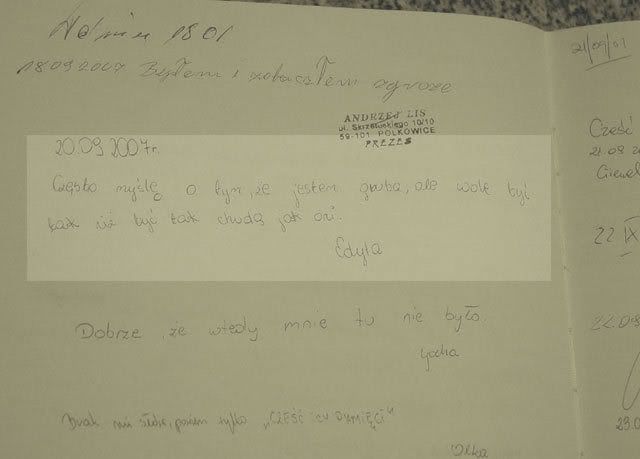 1801
18.09.2007 Byłem i zobaczyłem zgrozę
ANDRZEJ LIS
ul. Skrzetuskiego 10/10
59-101 POLKOWICE
PREZES
20.09.2007r.
Często myślę o tym, że jestem gruba, ale wolę być
tak niż być tak chudą jak oni.
Edyta
Dobrze, że wtedy mnie tu nie było.
Brak mi słów, powiem tylko "CZEŚĆ ICH PAMIĘCI"
Olka
21/09/07
Cześć
21.09
22 IX
22.09
23.0